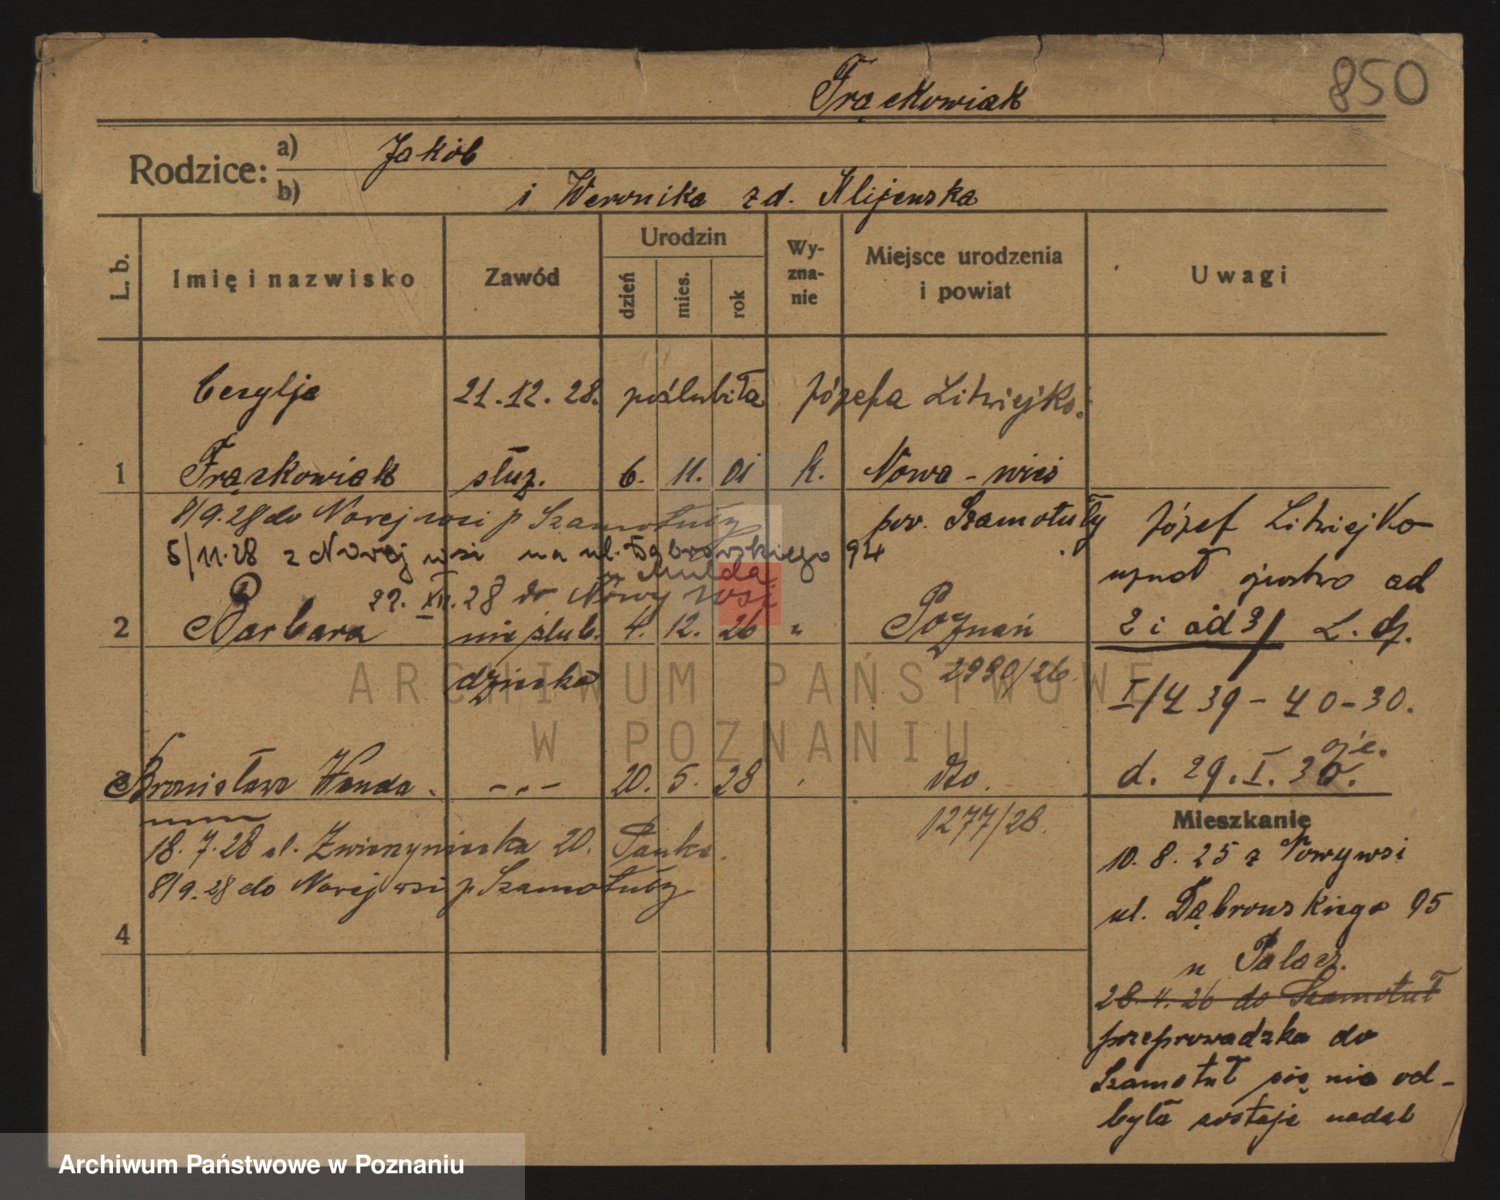 850
Frąckowiak
Rodzice: a) Jakób
b) i Weronika zd. Klijewska
L. b. Imię i nazwisko Zawód Urodzin dzień mies. rok Wy-zna-nie Miejsce urodzenia i powiat Uwagi
Cecylja 21.12.28. poślubiła Józefa Litwiejko.
1 Frąckowiak służ. 6. 11. 01 k. Nowa-wieś
8/9.28 do Nowejwsi p Szamotuły pow. Szamotuły
5/11.28 z Nowej wsi na ul. Dąbrowskiego 94
u Mulda
29. XII. 28 do Nowy wsi
2 Barbara nieślub. 4. 12. 26 " Poznań
dziecko 2990/26.
3 Bronisława Wanda. -„- 20. 5. 28 " dto.
1277/28.
18.7.28 ul. Zwierzyniecka 20.
8/9.28 do Nowejwsi p Szamotuły
4
Józef Litwiejko
uznał ojcostwo ad
2 i ad 3/ L. dz.
I/4 39-40-30.
d. 29.I.30.
Mieszkanie
10.8.25 z Nowywsi
ul. Dąbrowskiego 95
u Palacz.
28.4.26 do Szamotuł
przeprowadzka do
Szamotuł się nie od-
była zostaje nadal
ARCHIWUM PAŃSTWOWE
W POZNANIU
Archiwum Państwowe w Poznaniu